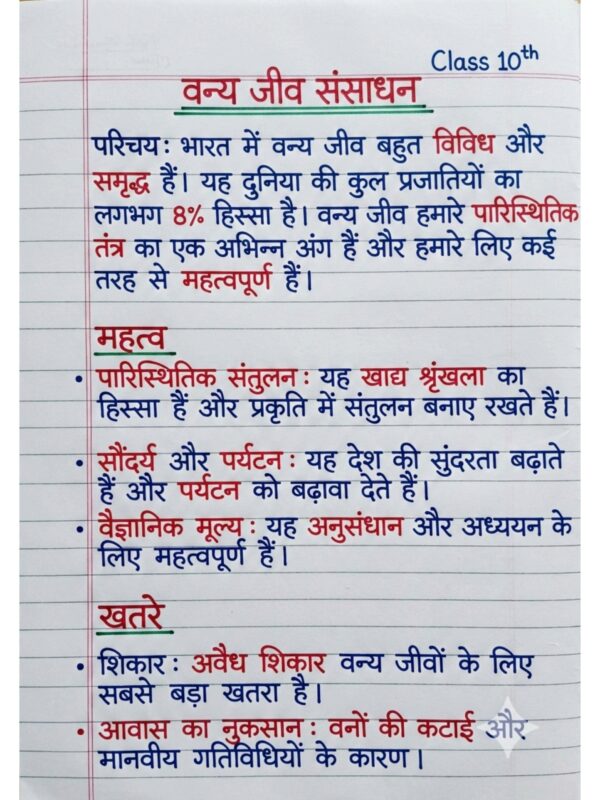 Class 10th
वन्य जीव संसाधन
परिचय: भारत में वन्य जीव बहुत विविध और
समृद्ध हैं। यह दुनिया की कुल प्रजातियों का
लगभग 8% हिस्सा है। वन्य जीव हमारे पारिस्थितिक
तंत्र का एक अभिन्न अंग हैं और हमारे लिए कई
तरह से महत्वपूर्ण हैं।
महत्व
• पारिस्थितिक संतुलन: यह खाद्य श्रृंखला का
हिस्सा हैं और प्रकृति में संतुलन बनाए रखते हैं।
• सौंदर्य और पर्यटन: यह देश की सुंदरता बढ़ाते
हैं और पर्यटन को बढ़ावा देते हैं।
• वैज्ञानिक मूल्य: यह अनुसंधान और अध्ययन के
लिए महत्वपूर्ण हैं।
खतरे
• शिकार: अवैध शिकार वन्य जीवों के लिए
सबसे बड़ा खतरा है।
• आवास का नुकसान: वनों की कटाई और
मानवीय गतिविधियों के कारण।